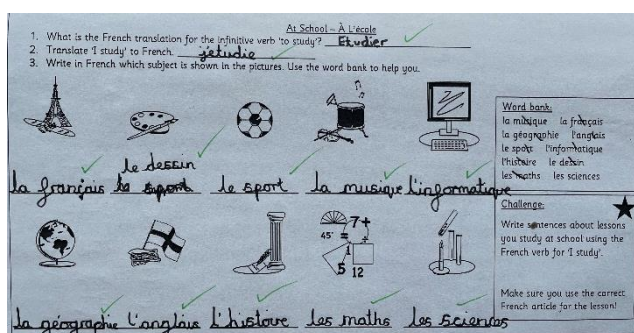 At School – À L'école
1. What is the French translation for the infinitive verb 'to study'? Etudier
2. Translate 'I study' to French. j'étudie
3. Write in French which subject is shown in the pictures. Use the word bank to help you.
le dessin
la français le sport la musique l'informatique
45° 7+
= 1
5 12
la géographie l'anglais L'histoire les maths les sciences
Word bank:
la musique la français
la géographie l'anglais
le sport l'informatique
l'histoire le dessin
les maths les sciences
Challenge:
Write sentences about lessons
you study at school using the
French verb for 'I study'.
Make sure you use the correct
French article for the lesson!